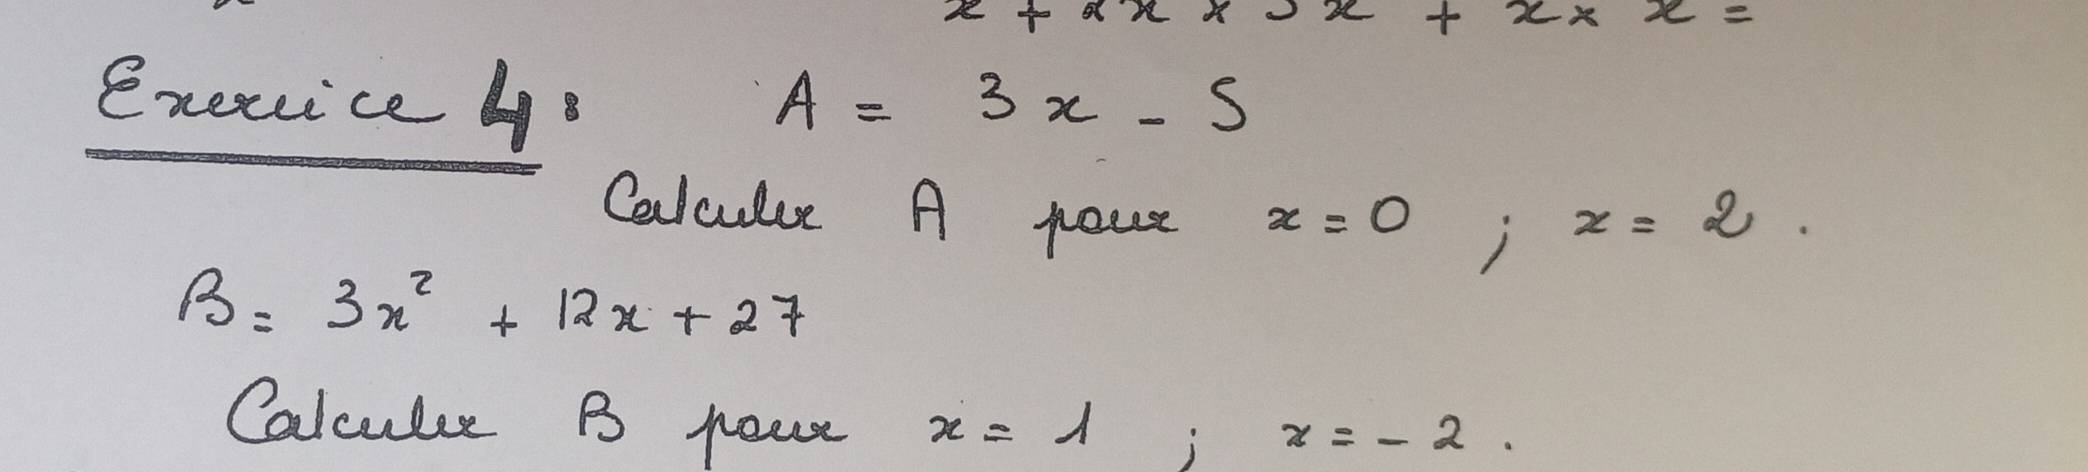 x + 2x × 3x + x × x =
Exercice 4 : A = 3x - 5
Calculer A pour x = 0 ; x = 2 .
B = 3x² + 12x + 27
Calculer B pour x = 1 ; x = - 2 .